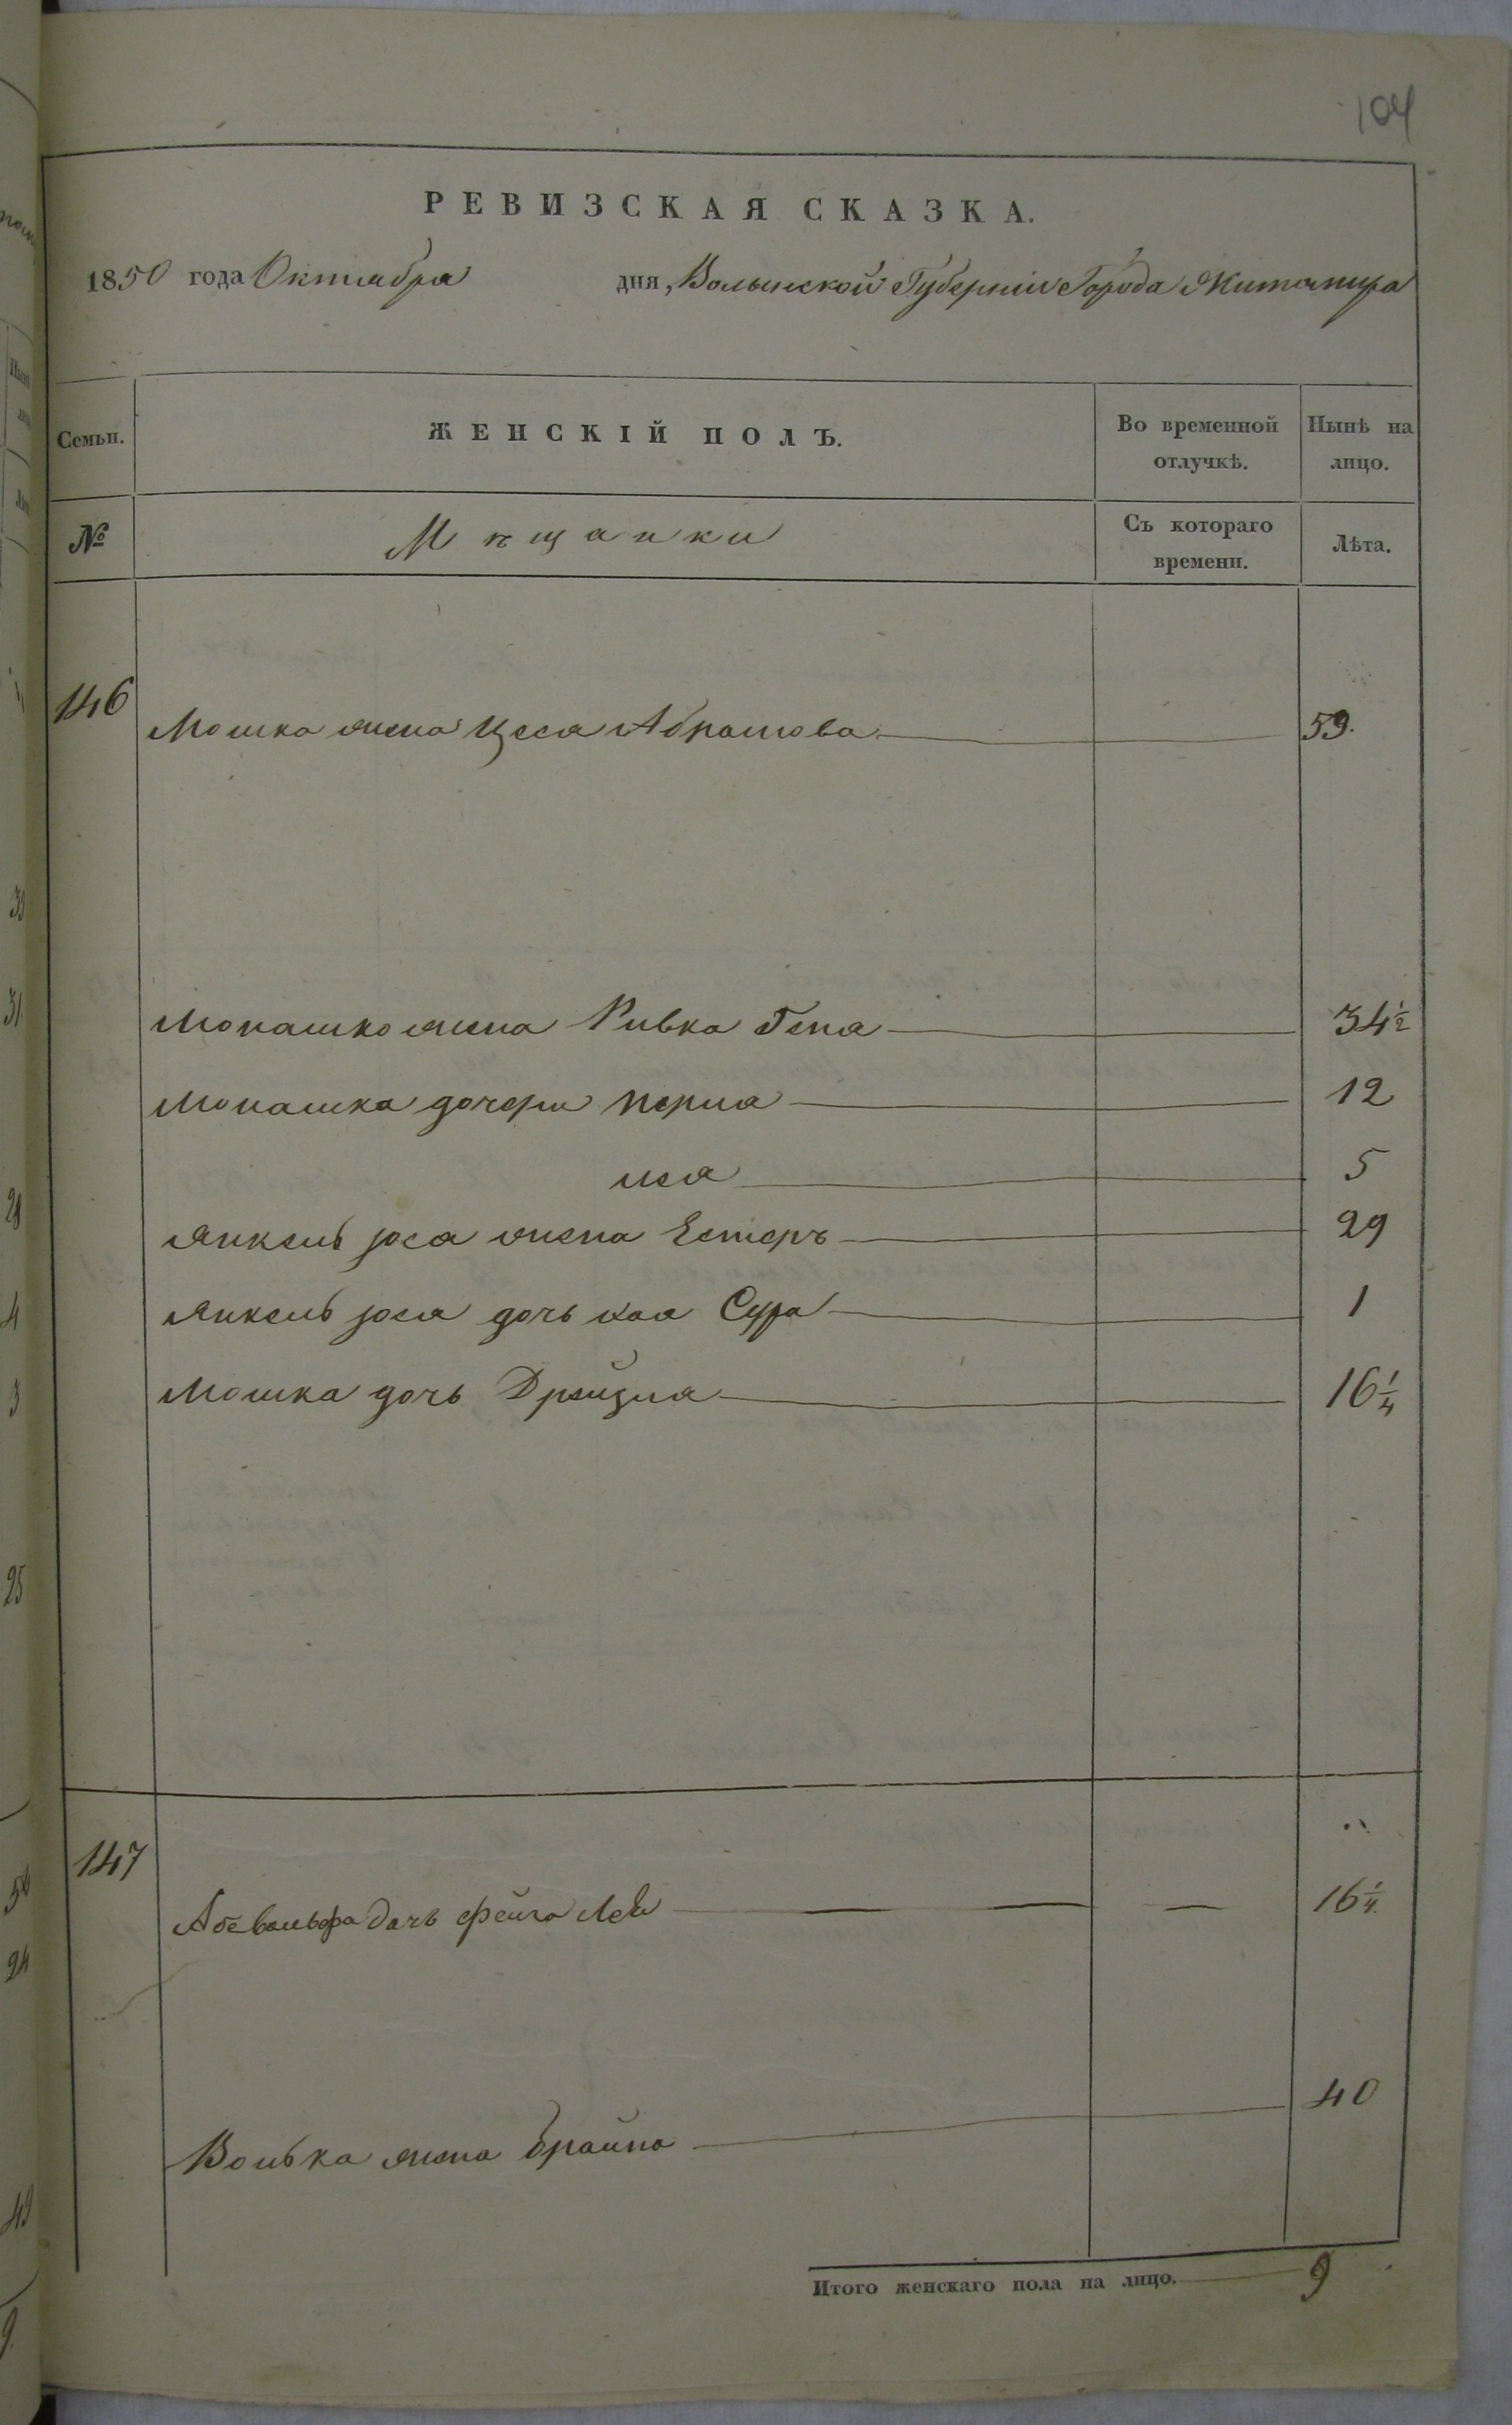 104
РЕВИЗСКАЯ СКАЗКА.
1850 года Октиабра дня, Волынской Губерніи Города Житомира
Семьи.
ЖЕНСКІЙ ПОЛЪ.
Во временной отлучкѣ.
Нынѣ на лицо.
№
Мѣщанки
Съ котораго времени.
Лѣта.
146 Мошка жена Цеся Абрамова 59.
Монашко жена Ривка Гепа 34½
Монашка дочери Перла 12
лея 5
Янкель јося жена Естеръ 29
Янкель јося дочь хая Сура 1
Мошка дочь Дрейзля 16¼
147 Абевольфа дочь Фейга Лея 16¼.
Волька жена брайна 40
Итого женскаго пола на лицо. 9